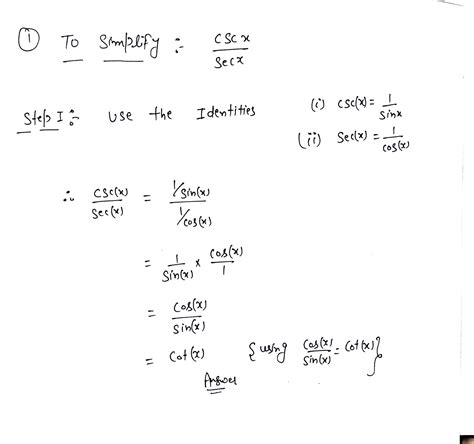 ① To Simplify :- csc x / sec x
Step I :- use the Identities (i) csc(x) = 1/sinx
(ii) sec(x) = 1/cos(x)
∴ csc(x)/sec(x) = (1/sin(x))/(1/cos(x))
= 1/sin(x) × cos(x)/1
= cos(x)/sin(x)
= cot(x) {using cos(x)/sin(x) = cot(x)}
Answer